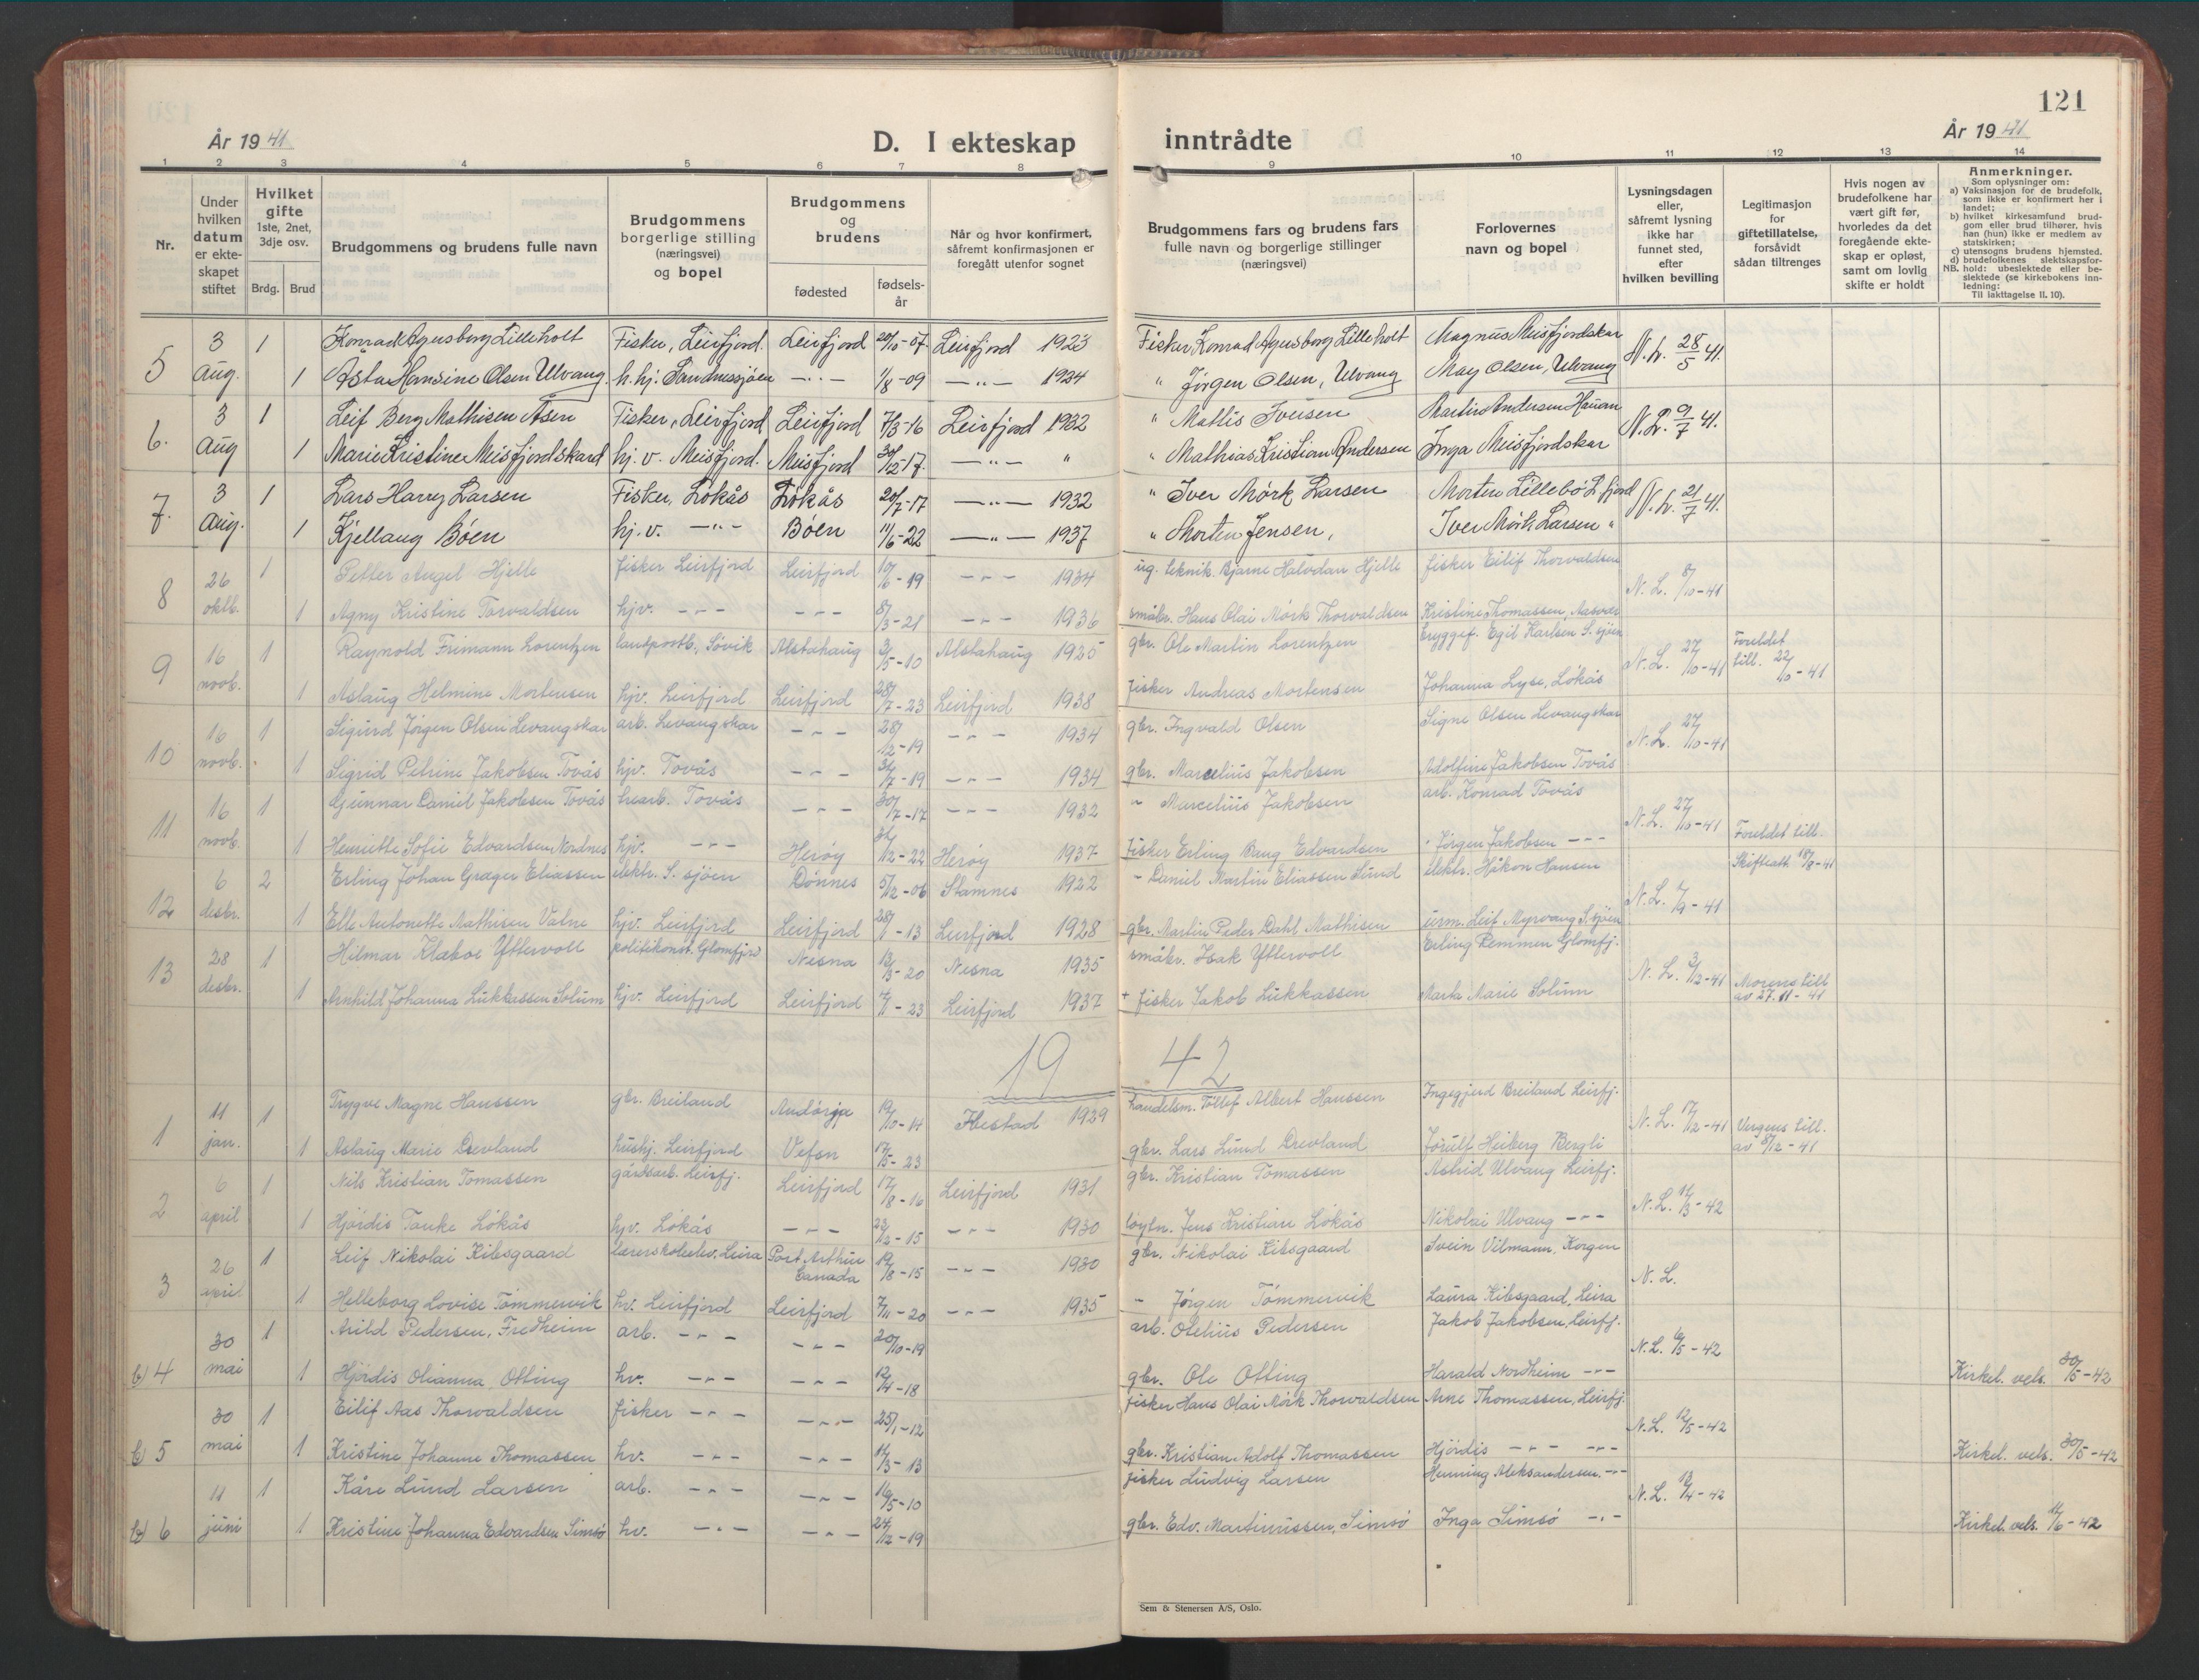 121
År 1941
D. I ekteskap inntrådte
År 1941
1 2 3 4 5 6 7 8 9 10 11 12 13 14
Nr.
Under hvilken datum er ekteskapet stiftet
Hvilket gifte 1ste, 2net, 3dje osv.
Brdg. Brud
Brudgommens og brudens fulle navn
Brudgommens borgerlige stilling (næringsvei) og bopel
Brudgommens og brudens
fødested
fødselsår
Når og hvor konfirmert, såfremt konfirmasjonen er foregått utenfor sognet
Brudgommens fars og brudens fars fulle navn og borgerlige stillinger (næringsvei)
Forlovernes navn og bopel
Lysningsdagen eller, såfremt lysning ikke har funnet sted, efter hvilken bevilling
Legitimasjon for giftetillatelse, forsåvidt sådan tiltrenges
Hvis nogen av brudefolkene har vært gift før, hvorledes da det foregående ekteskap er opløst, samt om lovlig skifte er holdt
Anmerkninger.
Som oplysninger om:
a) Vaksinasjon for de brudefolk, som ikke er konfirmert her i landet;
b) hvilket kirkesamfund brudgom eller brud tilhører, hvis han (hun) ikke er medlem av statskirken;
c) utensogns brudens hjemsted.
d) brudefolkenes slektskapsforhold: ubeslektede eller beslektede (se kirkebokens innledning:
NB.
Til iakttagelse II. 10).
5 3 Aug. 1 Konrad Agusborg Lilleholt Fisker, Leirfjord. Leirfjord 20/10-07 Leirfjord 1923 Fisker Konrad Agusborg Lilleholt Magnus Meisfjordskar N.L. 28/5 41.
1 Asta Hansine Olsen Ulvang h.hj. Sandnessjøen -"- 1/8-09 -"- 1924 " Jörgen Olsen, Ulvang May Olsen, Ulvang
6. 3 Aug 1 Leif Berg Mathisen Åsen Fisker, Leirfjord Leirfjord 7/3-16 Leirfjord 1932 " Mattis Iversen Martin Andersen N.L. 9/7 41.
1 Marie Kristine Meisfjordskard hj. v. Meisfjord. Meisfjord -17. -"- " " Mathias Kristian Andersen Inga Meisfjordskar
7. 3 Aug. 1 Lars Harry Larsen Fisker, Lökås Lökås 20/7-17 -"- 1932 " Iver Mörk Larsen Morten Lillebö L.fjord N.L. 21/7 41.
1 Kjellaug Böen hj.v. -"- Böen 11/6-22 -"- 1937 " Morten Jensen, Iver Mörk Larsen "
8 26 oktb. 1 Petter Angel Hjelle fisker Leirfjord Leirfjord 10/6-19 -"- 1934 ing. teknik. Bjarne Halvdan Hjelle fisker Eilif Thorvaldsen N.L. 8/10-41
1 Agny Kristine Torvaldsen hjv. -"- -"- 8/3-21 -"- 1936 småbr. Hans Olai Mörk Thorvaldsen Kristine Thomassen,
9 16 novb. 1 Raynold Frimann Lorentzen landpostb. Sövik Alstahaug 2/5-10 Alstahaug 1925 gbr. Ole Martin Lorentzen bryggef. Egil Karlsen S.sjöen N.L. 27/10-41 Foreldet till. 22/10-41
1 Aslaug Helmine Mortensen hjv. Leirfjord Leirfjord 28/7-23 Leirfjord 1938 fisker Andreas Mortensen Johanna Lyse, Lökås
10 16 novb. 1 Sigurd Jörgen Olsen Levangskar arb. Levangskar -"- 28/12-19 -"- 1934 gbr. Ingvald Olsen Signe Olsen Levangskar N.L. 27/10-41
1 Sigrid Petrine Jakobsen Tovås hjv. Tovås -"- 31/7-19 -"- 1934 gbr. Marcelius Jakobsen Adolfine Jakobsen Tovås
11 16 novb. 1 Gunnar Daniel Jakobsen Tovås Tovås -"- 30/7-17 -"- 1932 " Marcelius Jakobsen arb. Konrad Tovås N.L. 27/10-41 Foreldet till.
1 Henriette Sofie Edvardsen Nordnes hjv. -"- Heröy 31/12-22 Heröy 1937 Fisker Erling Baug Edvardsen " Jörgen Jakobsen -"-
12 6 desbr. 2 Erling Johan Grager Eliassen elektr. S.sjöen Dönnes 5/12-06 Stamnes 1922 " Daniel Martin Eliassen Lund elektr. Håkon Hansen N.L. -41 Skifteatt 18/8-41
1 Elle Antonette Mathisen Valne hjv. Leirfjord Leirfjord 28/1-13 Leirfjord 1928 gbr. Martin Peder Dahl Mathisen urm. Leif Myrvang S.sjöen
13 28 desbr. 1 Hilmar Klakoe Yttervoll politikonst. Glomfjord Nesna 13/3-20 Nesna 1935 småbr. Isak Yttervoll Erling Remmen Glomfj. N.L. 3/12-41 Morens till av 27.11-41
1 Arnhild Johanna Lukkassen Solum hjv. Leirfjord Leirfjord -23 Leirfjord 1937 + fisker Jakob Lukkassen Marta Marie Solum
19 42
1 11 jan. 1 Trygve Magne Hanssen gbr. Breiland Andörja 12/10-14 Ibestad 1929 handelsm. Tollef Albert Hanssen Ingegjerd Breiland Leirfj. N.L. 17/12-41 Vergens till. av 8/12-41
1 Aslaug Marie Drevland hushj. Leirfjord Vefsn 17/5-23 gbr. Lars Lund Drevland Jörulf Heiberg Bergli
2 6 april 1 Nils Kristian Tomassen gårdsarb. Leirfj. Leirfjord 17/8-16 Leirfjord 1931 gbr. Kristian Tomassen Astrid Ulvang Leirfj. N.L. 14/3-42
1 Hjördis Tanke Lökås hjv. Lökås -"- 22/12-15 -"- 1930 löytn. Jens Kristian Lökås Nikolai Ulvang -"-
3 26 april 1 Leif Nikolai Kibsgaard lærerskoleelev. Leira Port Arthur Canada 19/8-15 -"- 1930 gbr. Nikolai Kibsgaard Svein Vilmann, Korgen N.L.
1 Helleborg Lovise Tömmervik hv. Leirfjord Leirfjord 7/11-20 -"- 1935 " Jörgen Tömmervik Laura Kibsgaard, Leira
b) 4 30 mai 1 Arild Pedersen, Fredheim arb. -"- -"- 20/10-19 arb. Otelius Pedersen Jakob Jakobsen, Leirfj. N.L. 6/5-42
1 Hjördis Olianna Olting hv. -"- -"- 12/4-18 gbr. Ole Olting Harald Nordheim -"- Kirkel. vels. 30/5-42
b) 5 30 mai 1 Eilif Aas Thorvaldsen fisker -"- -"- 25/1-12 fisker Hans Olai Mörk Thorvaldsen Arne Thomassen, Leirfj. N.L. 12/5-42
1 Kristine Johanne Thomassen hv. -"- -"- 14/3-13 gbr. Kristian Adolf Thomassen Hjördis -"- -"- Kirkel. vels. 30/5-42
b) 6 11 juni 1 Kåre Lund Larsen arb. -"- -"- 16/5-10 fisker Ludvig Larsen Henning Aleksandersen -"- N.L. 13/4-42
1 Kristine Johanna Edvardsen Simsö hv. -"- -"- 24/12-19 gbr. Edv. Martinussen, Simsö Inga Simsö -"- Kirkel. vels. 11/6-42
Sem & Stenersen A/S, Oslo.